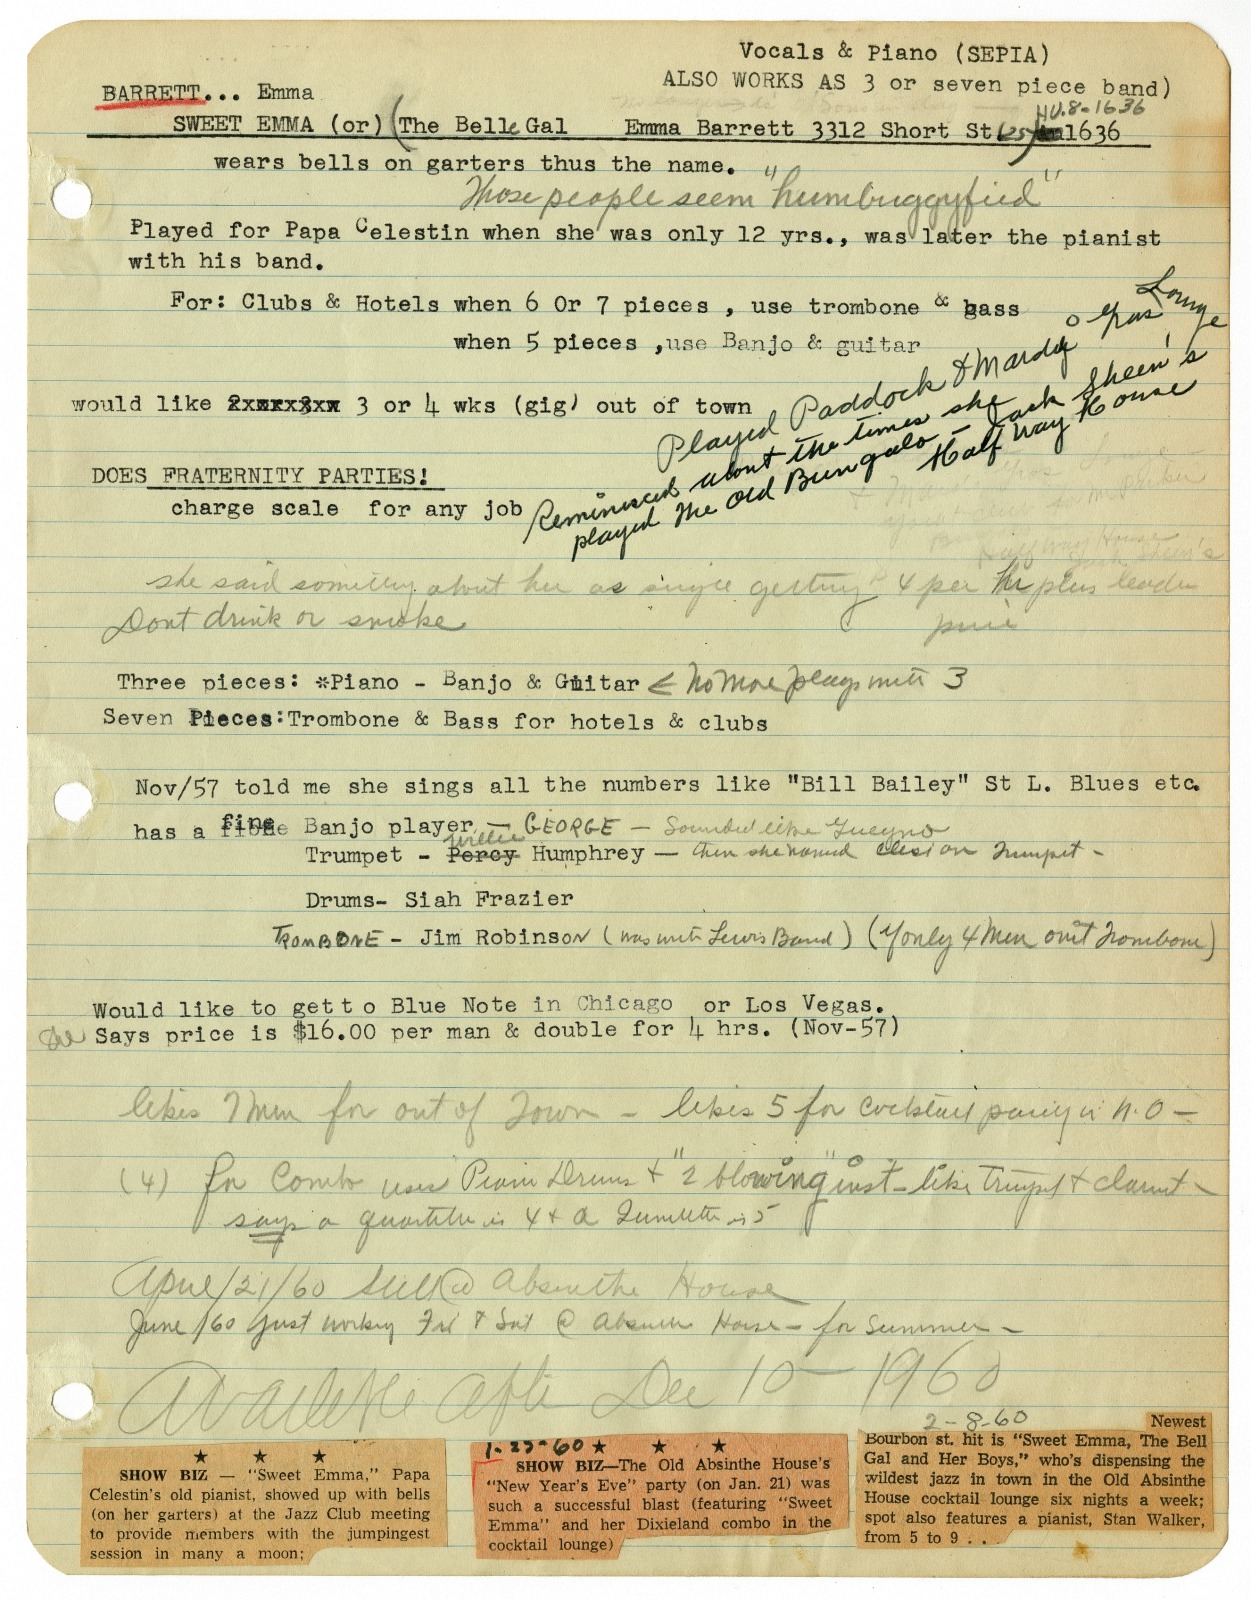 Vocals & Piano (SEPIA)
ALSO WORKS AS 3 or seven piece band)
BARRETT... Emma
HU.8-1636
SWEET EMMA (or) (The Belle Gal Emma Barrett 3312 Short St. (25) 1636
wears bells on garters thus the name.
Those people seem "humbuggyfied"
Played for Papa Celestin when she was only 12 yrs., was later the pianist
with his band.
For: Clubs & Hotels when 6 Or 7 pieces , use trombone & bass
when 5 pieces ,use Banjo & guitar
would like 3 or 4 wks (gig) out of town
Played Paddock & Mardi Gras Lounge
Reminisced about the times she
played the Old Bungalo - Jack Sheen's
Half Way House
DOES FRATERNITY PARTIES!
charge scale for any job
she said something about her as single getting 4 per hr plus leader
price
Dont drink or smoke
Three pieces: *Piano - Banjo & Guitar < No More plays with 3
Seven Pieces: Trombone & Bass for hotels & clubs
Nov/57 told me she sings all the numbers like "Bill Bailey" St L. Blues etc.
has a fine Banjo player - GEORGE - Sounded like Gueyno
Willie
Trumpet - Percy Humphrey - then she named else on Trumpet -
Drums- Siah Frazier
TROMBONE - Jim Robinson (was with Lewis Band) (if only 4 Men omit Trombone)
Would like to get t o Blue Note in Chicago or Los Vegas.
Says price is $16.00 per man & double for 4 hrs. (Nov-57)
likes 7 Men for out of Town - likes 5 for Cocktail party in N.O -
(4) for Combo uses Piano Drums & "2 blowing" inst - like Trumpet & clarinet -
says a quartette is 4 & a Quintette is 5
April/21/60 Still @ Absinthe House
June/60 Just working Fri & Sat @ Absinthe House - for Summer -
Available after Dec 10 - 1960
★ ★ ★
SHOW BIZ — "Sweet Emma," Papa
Celestin's old pianist, showed up with bells
(on her garters) at the Jazz Club meeting
to provide members with the jumpingest
session in many a moon;
1-23-60 ★ ★ ★
SHOW BIZ—The Old Absinthe House's
"New Year's Eve" party (on Jan. 21) was
such a successful blast (featuring "Sweet
Emma" and her Dixieland combo in the
cocktail lounge)
2-8-60
Newest
Bourbon st. hit is "Sweet Emma, The Bell
Gal and Her Boys," who's dispensing the
wildest jazz in town in the Old Absinthe
House cocktail lounge six nights a week;
spot also features a pianist, Stan Walker,
from 5 to 9 . .